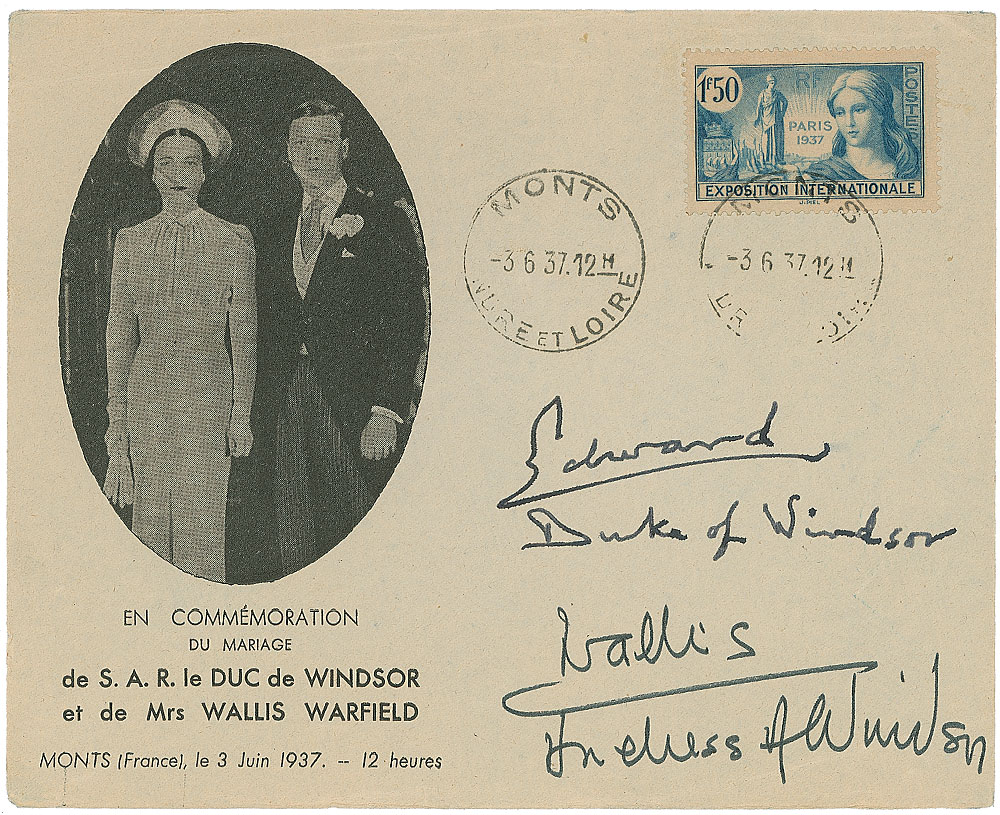 1F50
RF
POSTES
PARIS
1937
EXPOSITION INTERNATIONALE
MONTS
-3 6 37.12H
INDRE ET LOIRE
MONTS
-3 6 37.12H
Edward
Duke of Windsor
Wallis
Duchess of Windsor
EN COMMÉMORATION
DU MARIAGE
de S. A. R. le DUC de WINDSOR
et de Mrs WALLIS WARFIELD
MONTS (France), le 3 Juin 1937. -- 12 heures